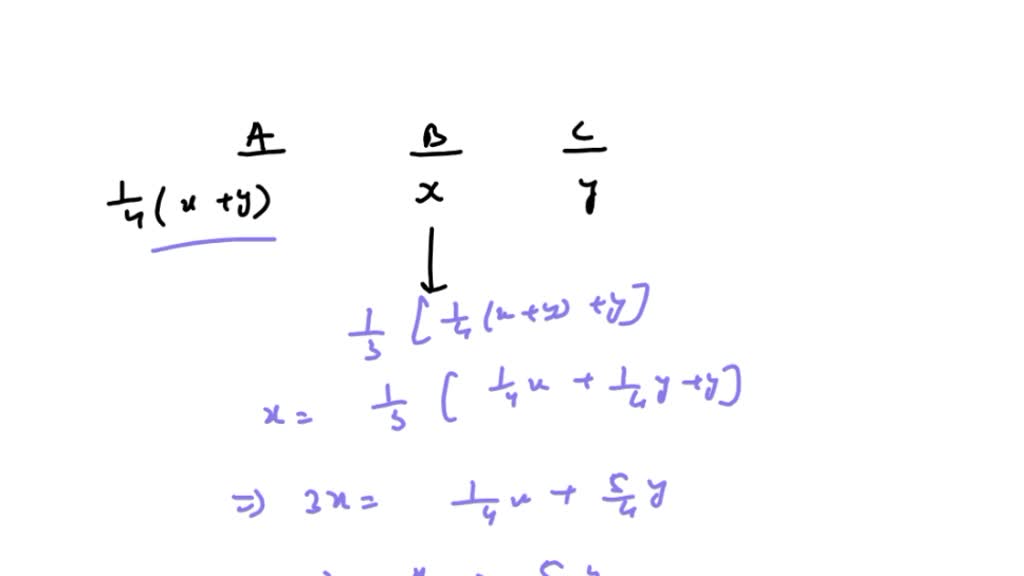 A B C
1/4 (x+y) x y
1/3 [1/4 (x+y) +y]
x = 1/3 [1/4 x + 1/4 y + y]
⇒ 3x = 1/4 x + 5/4 y